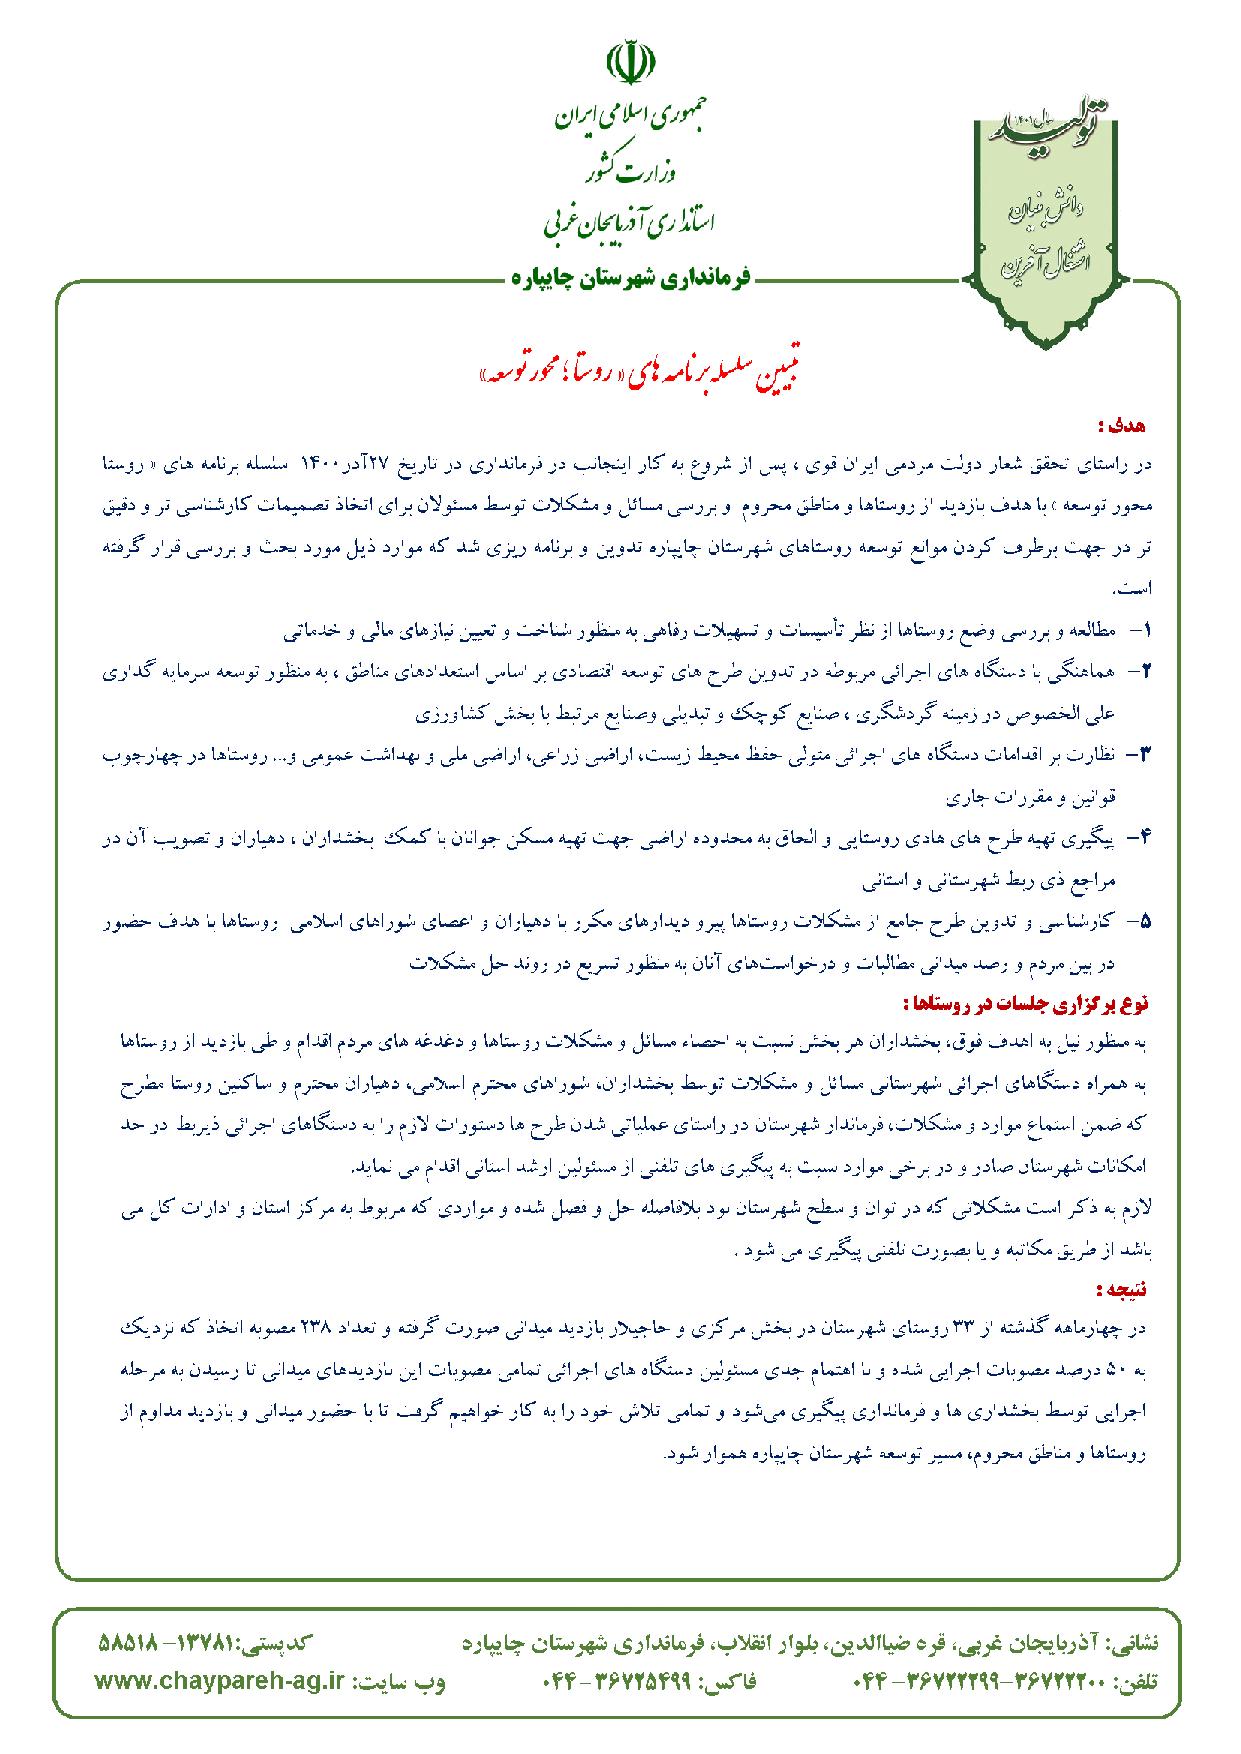 جمهوری اسلامی ایران
وزارت کشور
استانداری آذربایجان غربی
فرمانداری شهرستان چایپاره
سال ۱۴۰۱
تولید
دانش بنیان
اشتغال آفرین
تبیین سلسله برنامه های « روستا ؛ محور توسعه»
هدف :
در راستای تحقق شعار دولت مردمی ایران قوی ، پس از شروع به کار اینجانب در فرمانداری در تاریخ ۲۷آذر۱۴۰۰ سلسله برنامه های « روستا
محور توسعه » با هدف بازدید از روستاها و مناطق محروم و بررسی مسائل و مشکلات توسط مسئولان برای اتخاذ تصمیمات کارشناسی تر و دقیق
تر در جهت برطرف کردن موانع توسعه روستاهای شهرستان چایپاره تدوین و برنامه ریزی شد که موارد ذیل مورد بحث و بررسی قرار گرفته
است.
۱- مطالعه و بررسی وضع روستاها از نظر تأسیسات و تسهیلات رفاهی به منظور شناخت و تعیین نیازهای مالی و خدماتی
۲- هماهنگی با دستگاه های اجرائی مربوطه در تدوین طرح های توسعه اقتصادی بر اساس استعدادهای مناطق ، به منظور توسعه سرمایه گذاری
علی الخصوص در زمینه گردشگری ، صنایع کوچک و تبدیلی وصنایع مرتبط با بخش کشاورزی
۳- نظارت بر اقدامات دستگاه های اجرائی متولی حفظ محیط زیست، اراضی زراعی، اراضی ملی و بهداشت عمومی و... روستاها در چهارچوب
قوانین و مقررات جاری
۴- پیگیری تهیه طرح های هادی روستایی و الحاق به محدوده اراضی جهت تهیه مسکن جوانان با کمک بخشداران ، دهیاران و تصویب آن در
مراجع ذی ربط شهرستانی و استانی
۵- کارشناسی و تدوین طرح جامع از مشکلات روستاها پیرو دیدارهای مکرر با دهیاران و اعضای شوراهای اسلامی روستاها با هدف حضور
در بین مردم و رصد میدانی مطالبات و درخواست‌های آنان به منظور تسریع در روند حل مشکلات
نوع برگزاری جلسات در روستاها :
به منظور نیل به اهدف فوق، بخشداران هر بخش نسبت به احصاء مسائل و مشکلات روستاها و دغدغه های مردم اقدام و طی بازدید از روستاها
به همراه دستگاهای اجرائی شهرستانی مسائل و مشکلات توسط بخشداران، شوراهای محترم اسلامی، دهیاران محترم و ساکنین روستا مطرح
که ضمن استماع موارد و مشکلات، فرماندار شهرستان در راستای عملیاتی شدن طرح ها دستورات لازم را به دستگاهای اجرائی ذیربط در حد
امکانات شهرستان صادر و در برخی موارد نسبت به پیگیری های تلفنی از مسئولین ارشد استانی اقدام می نماید.
لازم به ذکر است مشکلاتی که در توان و سطح شهرستان بود بلافاصله حل و فصل شده و مواردی که مربوط به مرکز استان و ادارات کل می
باشد از طریق مکاتبه و یا بصورت تلفنی پیگیری می شود .
نتیجه :
در چهارماهه گذشته از ۳۳ روستای شهرستان در بخش مرکزی و حاجیلار بازدید میدانی صورت گرفته و تعداد ۲۳۸ مصوبه اتخاذ که نزدیک
به ۵۰ درصد مصوبات اجرایی شده و با اهتمام جدی مسئولین دستگاه های اجرائی تمامی مصوبات این بازدیدهای میدانی تا رسیدن به مرحله
اجرایی توسط بخشداری ها و فرمانداری پیگیری می‌شود و تمامی تلاش خود را به کار خواهیم گرفت تا با حضور میدانی و بازدید مداوم از
روستاها و مناطق محروم، مسیر توسعه شهرستان چایپاره هموار شود.
نشانی: آذربایجان غربی، قره ضیاالدین، بلوار انقلاب، فرمانداری شهرستان چایپاره کدپستی:۱۳۷۸۱- ۵۸۵۱۸
تلفن: ۳۶۷۲۲۲۰۰-۳۶۷۲۲۲۹۹- ۰۴۴ فاکس: ۳۶۷۲۵۴۹۹ - ۰۴۴ وب سایت: www.chaypareh-ag.ir